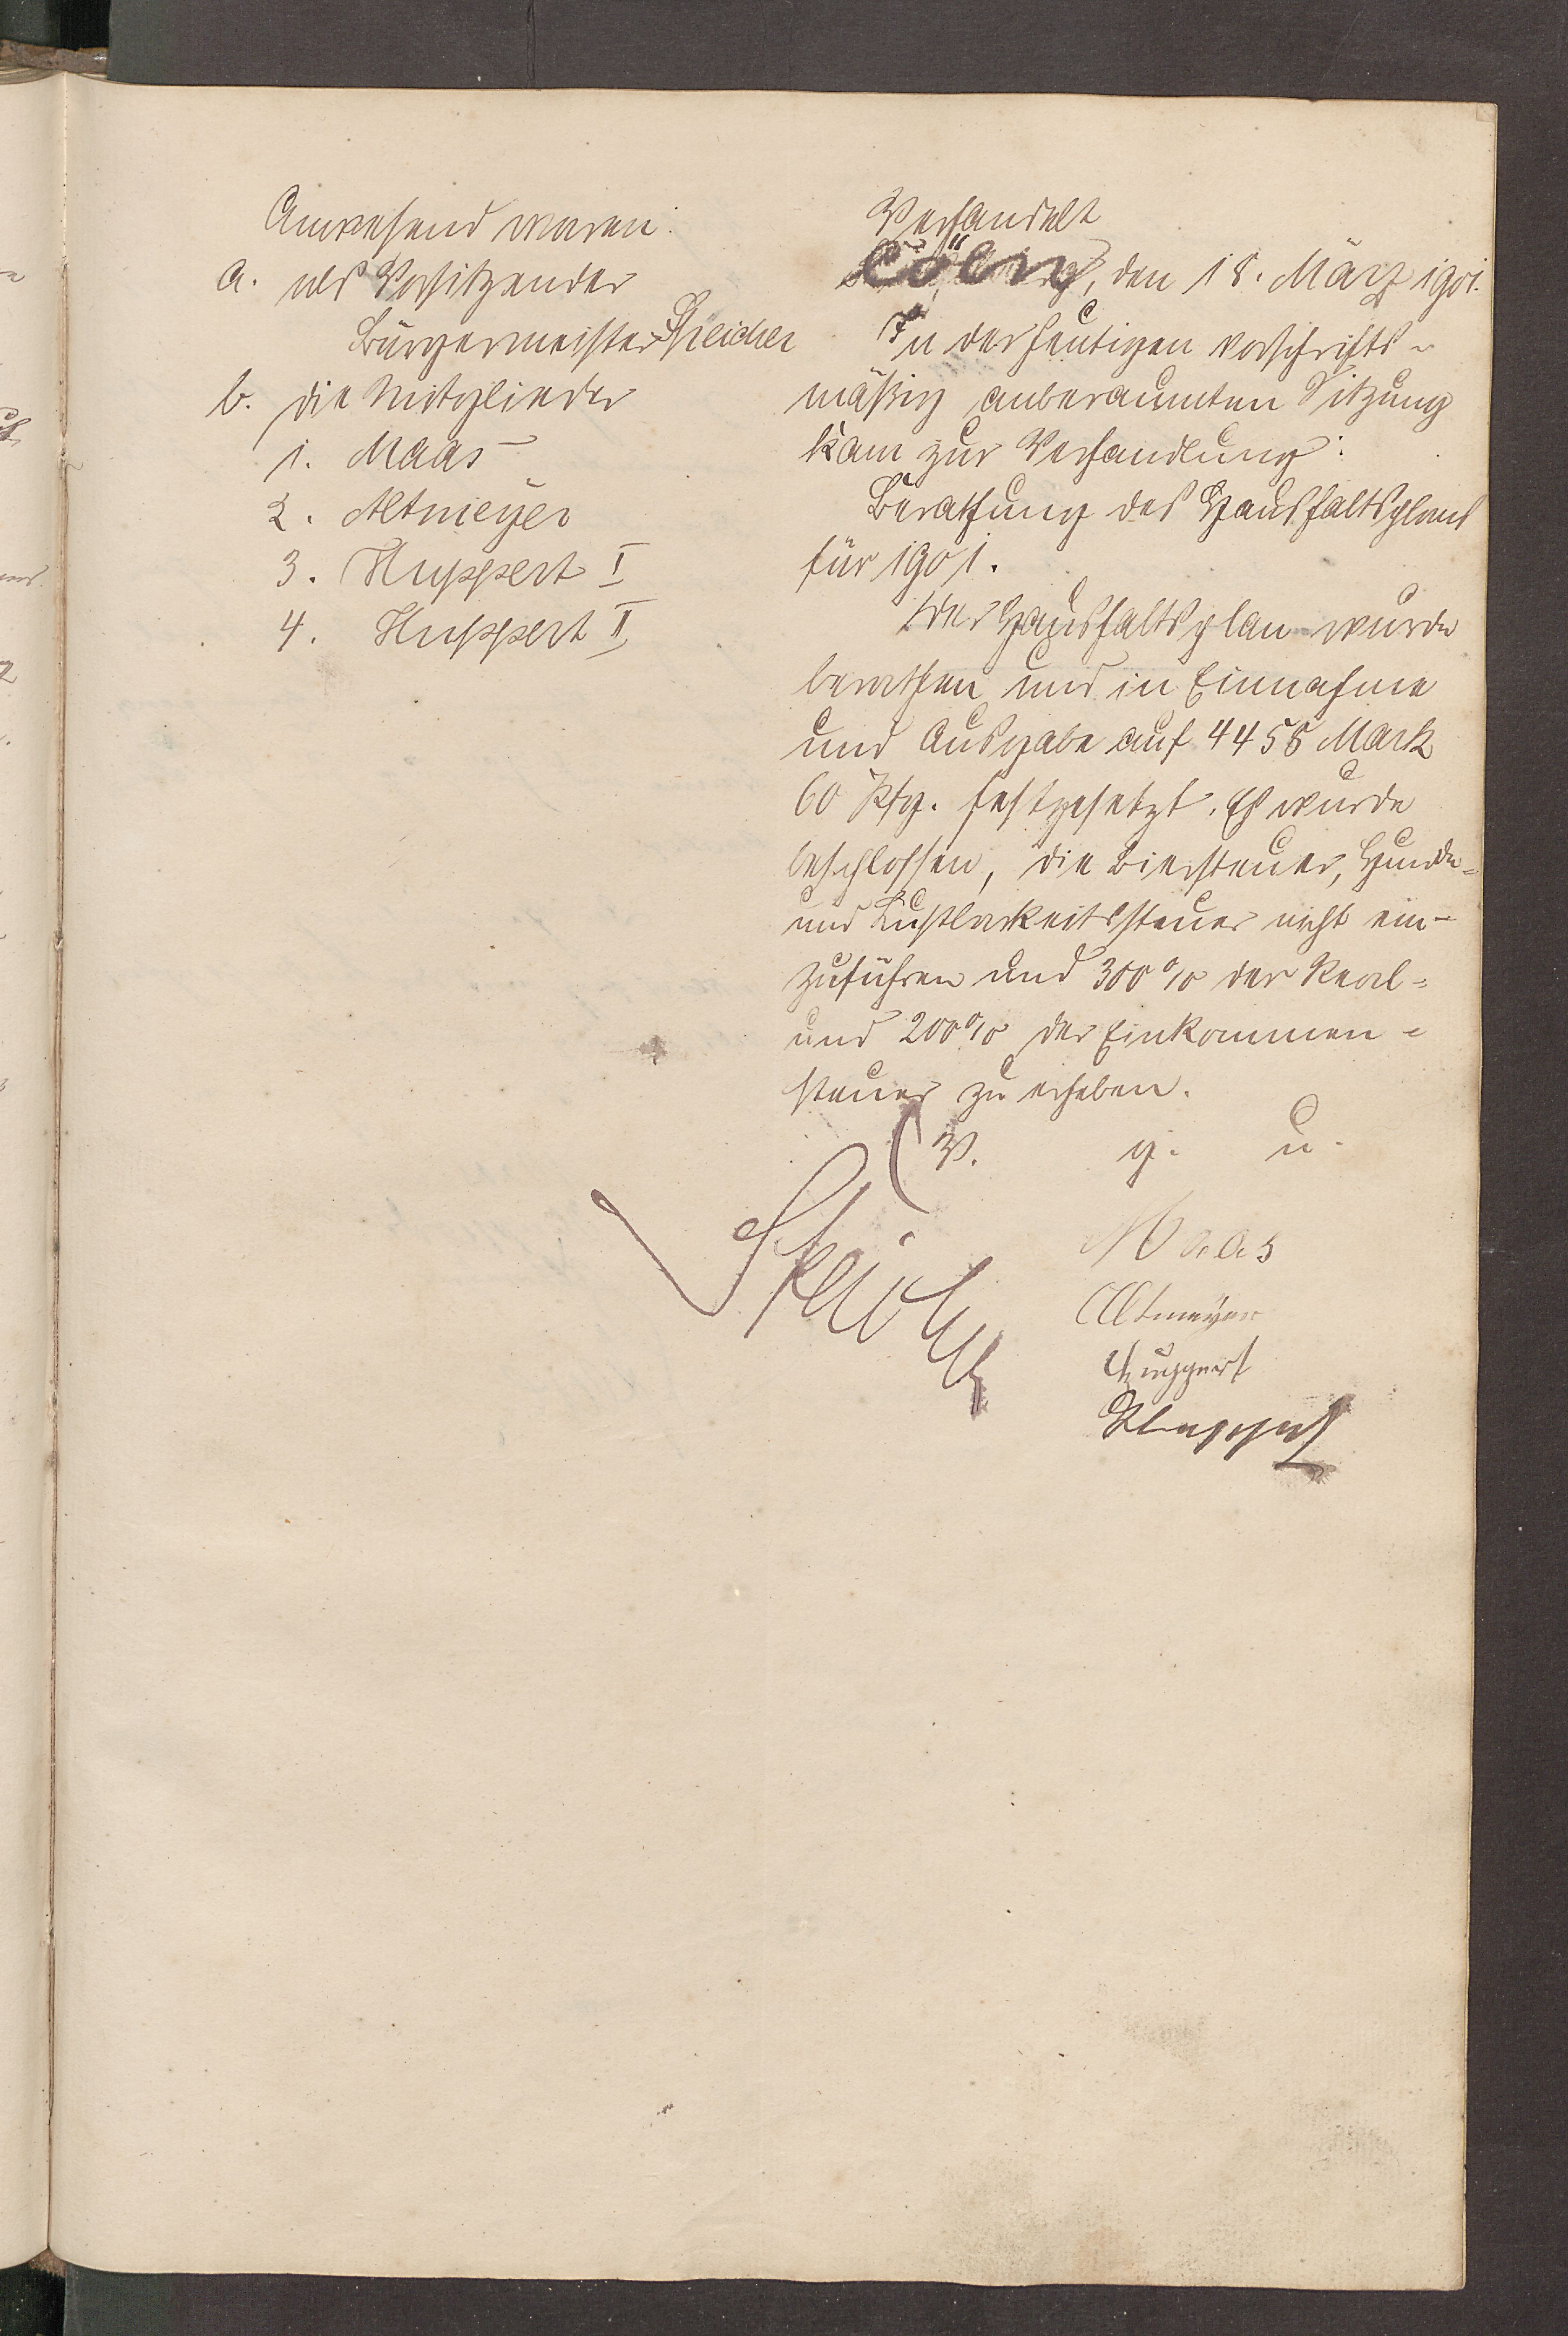 Anwesend waren:
a. als Vorsitzender
Bürgermeister Speicher
b. die Mitglieder
1. Maas
2. Altmeyer
3. Huppert I
4. Huppert II
Verhandelt
Cölln, den 18. März 1901.
In der heutigen vorschrifts-
mäßig anberaumten Sitzung
kam zur Verhandlung:
Berathung des Haushaltsplans
für 1901.
Der Haushaltsplan wurde
berathen und in Einnahme
und Ausgabe auf 4458 Mark
60 Pfg. festgesetzt. Es wurde
beschlossen, die Biersteuer, Hunde-
und Lustbarkeitssteuer nicht ein-
zuführen und 300% der Real-
und 200% der Einkommen-
steuer zu erheben.
V. g. u.
Speicher
Maas
Altmeyer
Huppert
Huppert